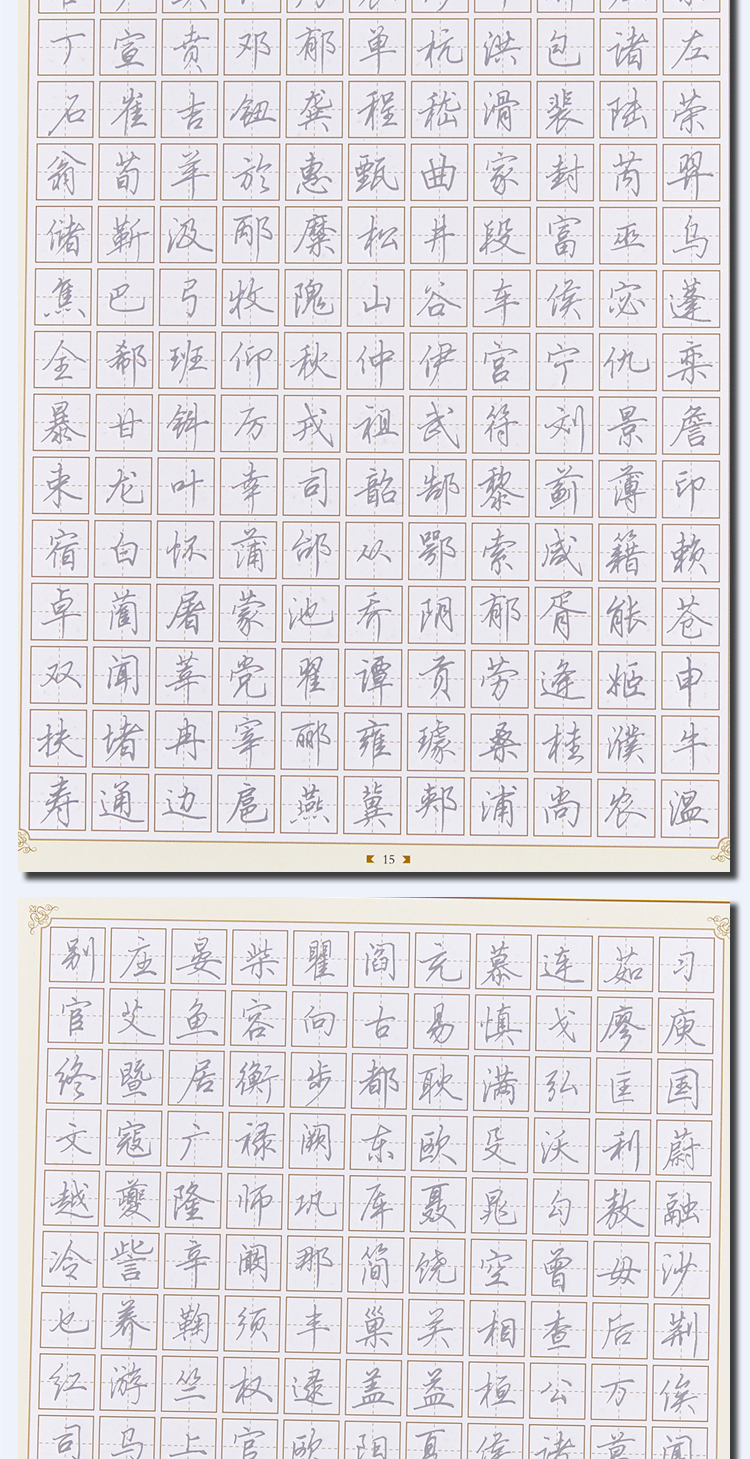 丁宣贲邓郁单杭洪包诸左
石崔吉钮龚程嵇滑裴陆荣
翁荀羊於惠甄曲家封芮羿
储靳汲邴糜松井段富巫乌
焦巴弓牧隗山谷车侯宓蓬
全郗班仰秋仲伊宫宁仇栾
暴甘钭厉戎祖武符刘景詹
束龙叶幸司韶郜黎蓟薄印
宿白怀蒲邰从鄂索咸籍赖
卓蔺屠蒙池乔阴郁胥能苍
双闻莘党翟谭贡劳逄姬申
扶堵冉宰郦雍璩桑桂濮牛
寿通边扈燕冀郏浦尚农温
15
别庄晏柴瞿阎充慕连茹习
宦艾鱼容向古易慎戈廖庾
终暨居衡步都耿满弘匡国
文寇广禄阙东欧殳沃利蔚
越夔隆师巩厍聂晁勾敖融
冷訾辛阚那简饶空曾毋沙
乜养鞠须丰巢关相查后荆
红游竺权逯盖益桓公万俟
司马上官欧阳夏侯诸葛闻